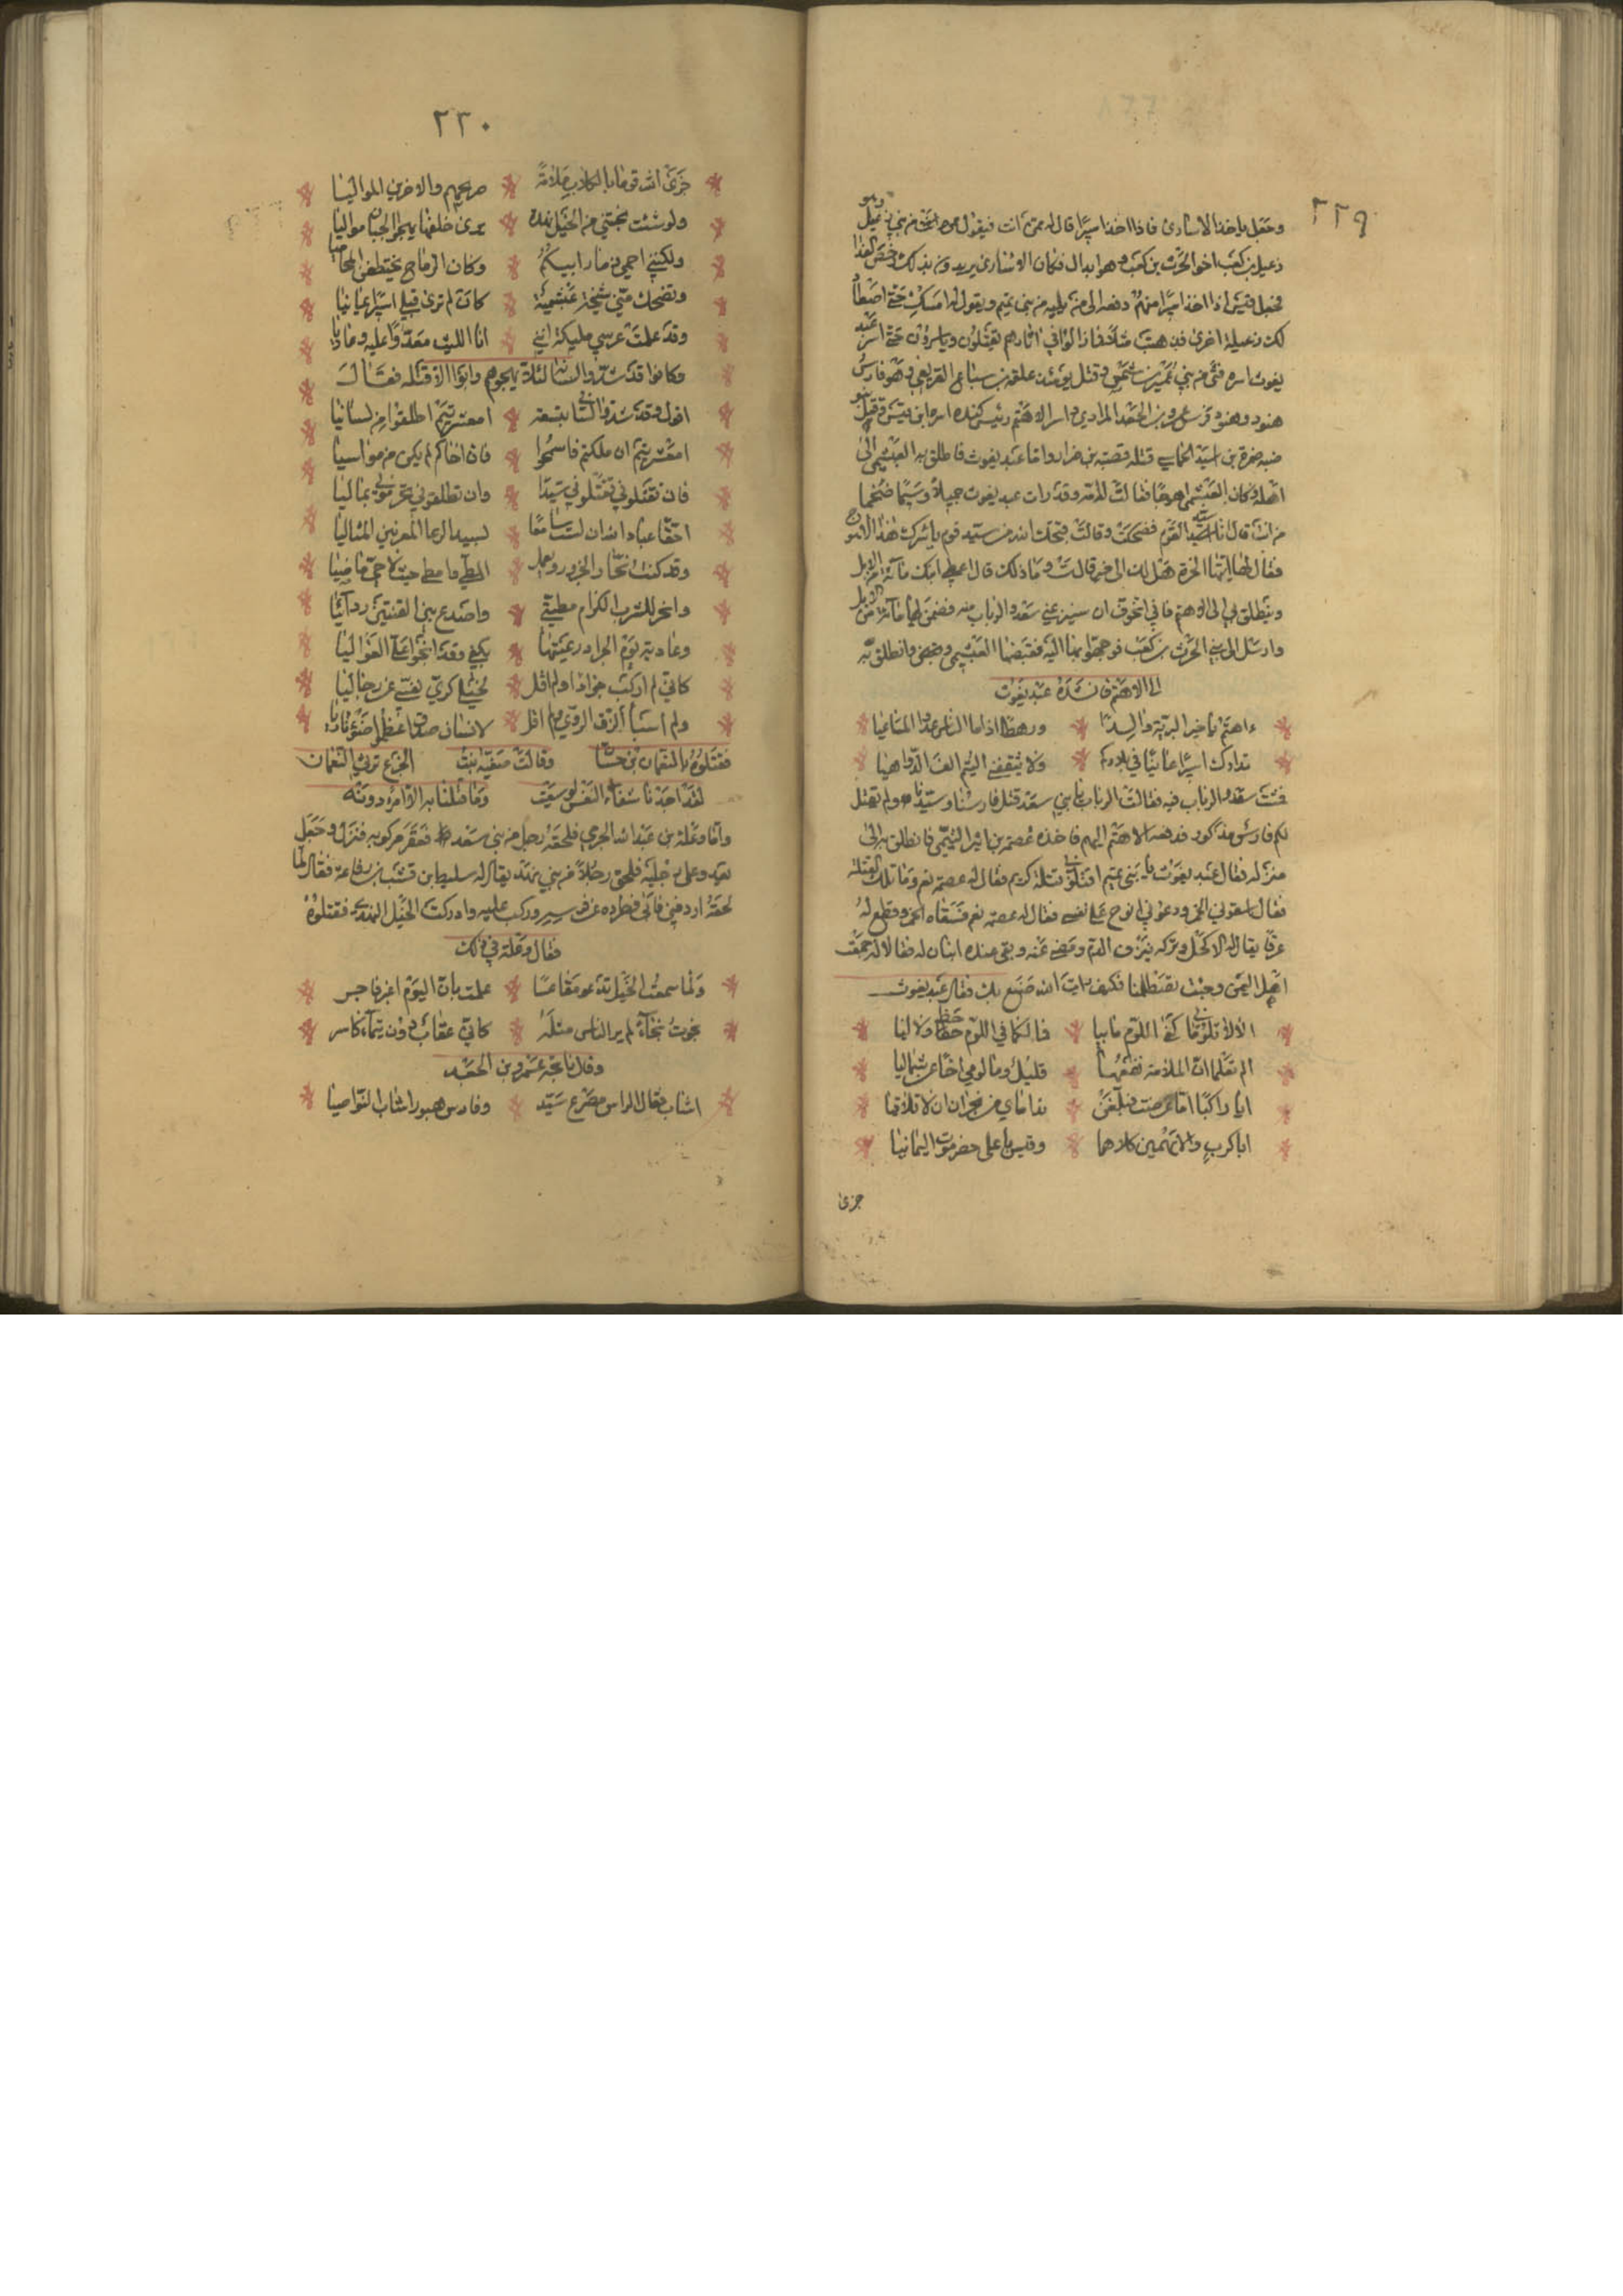 ٢٢٩
وجعل ياخذ الاسارى فاذا اخذ اسيرا قال له ممن انت فيقول من بني زعبل
زعبل بن كعب اخو الحرث بن كعب وهم اندال فكان الاسارى يريدون بذلك رخص الفدا
فجعل قيس اذا اخذ اسيرا منهم دفعه الى من يليه من بني تميم ويقول له امسك حتى اصطاد
لك زعبلة اخرى فذهبت مثلا فما زالوا في اثارهم يقتلون وياسرون حتى اسر عبد
يغوث اسره فتى من بني عمير بن شمس وقتل يومئذ علقمة بن سباع القريعي وهو فارس
هبود وهبود فرس عمرو بن الجعد المرادي واسر الاهتم رئيس كنده
ضبه ضمرة بن لبيد الحماسي قتله قبيصة بن ضرار واما عبد يغوث فانطلق به العبشمي الى
اهله وكان العبشمي اهوج فقالت له امه وقد رات عبد يغوث جميلا وسيما ضخما
من انت قال انا سيد القوم فضحكت وقالت قبحك الله من سيد قوم ياسرك هذا الاهوج
فقال لها ايتها الحرة هل لك الى خير قالت وما ذلك قال اعطي ابنك مائة من الابل
وينطلق بي الى الاهتم فاني اتخوف ان ينتزعني سعد والرباب منه فضمن لها مائة من الابل
وارسل الى بني الحرث بن كعب فوجهوا بها اليه فقبضها العبشمي وانطلق به
الى الاهتم فانشده عبد يغوث
ءاهتم يا خير البرية والدا ورهطا اذا ما الناس عدوا المساعيا
تدارك اسيرا عانيا في بلادكم ولا تثقفني التيم الق الدواهيا
فمشت سعد والرباب فيه فقالت الرباب يا بني سعد قتل فارسنا وسيدنا ولم يقتل
لكم فارس مذكور فدفعه الاهتم اليهم فاخذه عصمة بن ابير التيمي فانطلق به الى
منزله فقال عبد يغوث يا بني تميم اقتلوني قتلة كريم فقال له عصمة نعم وما تلك القتلة
فقال اسقوني الخمر ودعوني انوح على نفسي فقال له عصمة نعم فسقاه الخمر وقطع له
عرقا يقال له الاكحل وتركه ينزف الدم ومضى عنه وبقي عنده ابنان له فقالا له جمعت
اهل اليمن وجيت لتصطلمنا فكيف رايت الله صنع بك فقال عبد يغوث
الا لا تلوماني كفى اللوم ما بيا فما لكما في اللوم حظ ولا ليا
الم تعلما ان الملامة نفعها قليل وما لومي اخا من شماليا
ايا راكبا اما عرضت فبلغن نداماي من نجران ان لا تلاقيا
ابا كرب والايهمين كلاهما وقيسا باعلى حضرموت اليمانيا
جزى
٢٣٠
جزى الله قوما بالكلاب ملامة صريحهم والاخرين المواليا
ولو شئت نجتني من الخيل نهدة ترى خلفها الجياد تواليا
ولكنني احمي ذمار ابيكم وكان الرماح يختطفن المحاميا
وتضحك مني شيخة عبشمية كان لم ترى قبلي اسيرا يمانيا
وقد علمت عرسي مليكة انني انا الليث معدوا عليه وعاديا
وكانوا قد شدوا لسانه لئلا يهجوهم وابوا الا قتله فقال
اقول وقد شدوا لساني بنسعة امعشر تيم اطلقوا من لسانيا
امعشر تيم ان ملكتم فاسجحوا فان اخاكم لم يكن من بوائيا
فان تقتلوني تقتلوني سيدا وان تطلقوني تحربوني بماليا
احقا عباد الله ان لست سامعا نشيد الرعا المعزبين المتاليا
وقد كنت نحار الجزور ومعمل المطي وامضي حيث لا حي ماضيا
وانحر للشرب الكرام مطيتي واصدع بين القينتين ردائيا
وعادية سوم الجراد وزعتها بكفي وقد انحوا علي العواليا
كاني لم اركب جوادا ولم اقل لخيلي كري نفسي عن رجاليا
ولم اسبا الزق الروي ولم اقل لايسار صدق اعظموا ضوء ناريا
فقتلوه بالنعمان بن جساس وقالت صفية بنت الخرع ترثي النعمان
وما قتلنا به الا امرا دونه
واما وعلة بن عبد الله الجرمي فلحقه رجل من بني سعد فعقر مركوبه فنزل وجعل
يعدو على رجليه فلحق رجلا من بني نهد يقال له سليط بن قتب بن رفاعة فقال لما
لحقه اردفني فابى فطرده عن فرسه وركب عليه وادركت الخيل النهدي فقتلوه
فقال وعلة في ذلك
ولما سمعت الخيل تدعو مقاعسا علمت بان اليوم اغبر فاجر
نجوت نجاء لم ير الناس مثله كاني عقاب دون تيماء كاسر
وقال ناجية عمرو بن الجعد
اشاب قذال الراس مصرع سيد وفارس هبود اشاب النواصيا